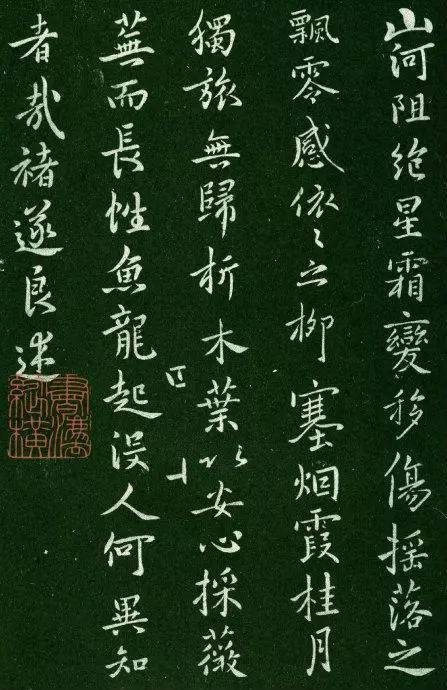 山河阻絶星霜變移傷摇落之
飄零感依〻之柳塞烟霞桂月
獨旅無歸析木葉以安心採薇
蕪而長性魚龍起没人何異知
者哉褚遂良述